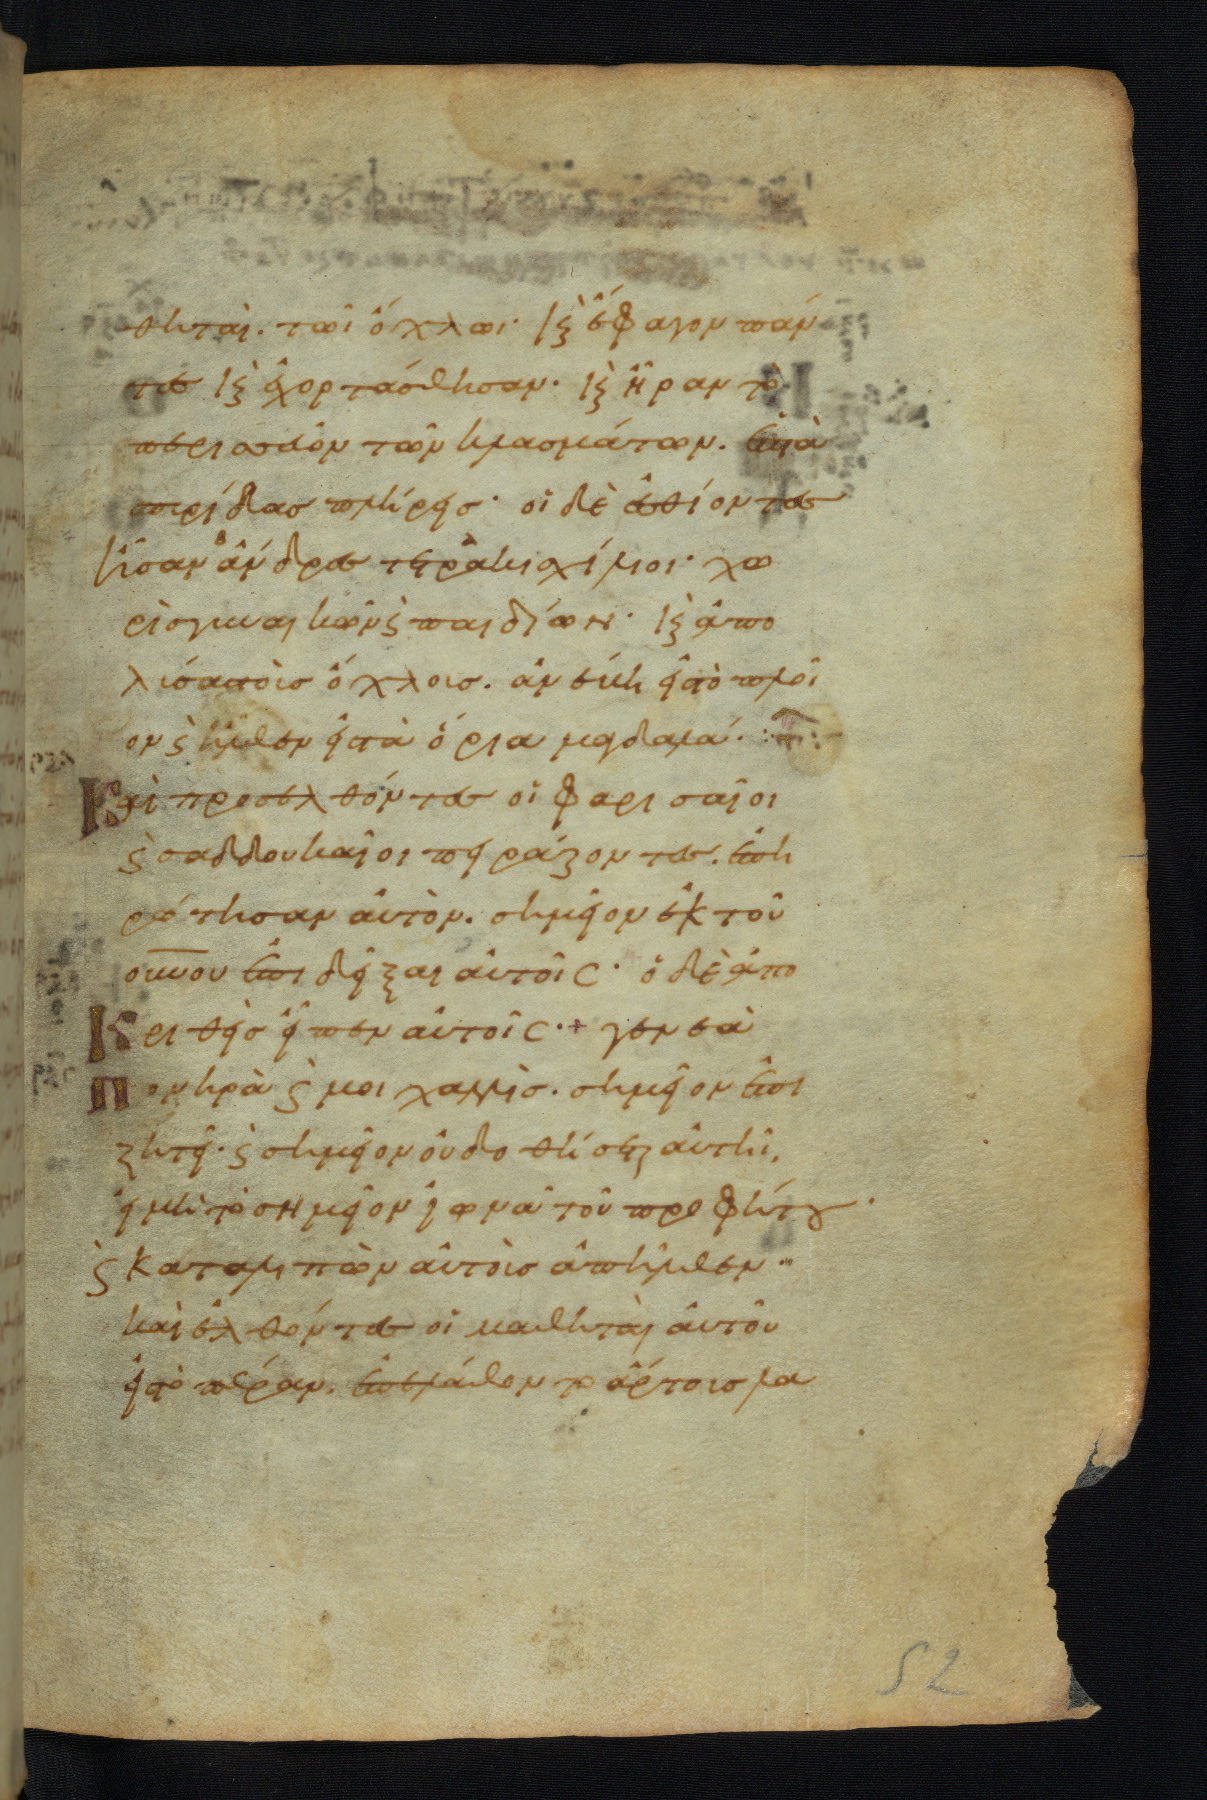 θηταὶ. τῶι ὄχλωι· κ̀ ἔφαγον πάν
τες κ̀ ἐχορτάσθησαν· κ̀ ἦραν τὸ
περισσεῦον τῶν κλασμάτων. ἑπτὰ
σπυρίδας πλήρεις· οἱ δὲ ἐσθίοντες
ἦσαν ἄνδρες τετρακισχίλιοι· χω
ρὶς γυναικῶν ϛ̀ παιδίων· κ̀ ἀπο
λύσας τοὺς ὄχλους. ἀνέβη εἰς τὸ πλοῖ
ον ϛ̀ ἦλθεν εἰς τὰ ὅρια μαγδαλά·
Καὶ προσελθόντες οἱ φαρισαῖοι
ϛ̀ σαδδουκαῖοι πειράζοντες. ἐπη
ρώτησαν αὐτὸν. σημεῖον ἐκ τοῦ
ουνου ἐπιδεῖξαι αὐτοῖς· ὁ δὲ ἀπο
Κριθεὶς εἶπεν αὐτοῖς·+ γενεὰ
Πονηρὰ ϛ̀ μοιχαλὶς. σημεῖον ἐπι
ζητεῖ· ϛ̀ σημεῖον οὐ δοθήσεται αὐτῆ,
εἰ μὴ τὸ σημεῖον ἰωνᾶ τοῦ προφήτου·
ϛ̀ καταλιπὼν αὐτοὺς ἀπῆλθεν··
καὶ ἐλθόντες οἱ μαθηταὶ αὐτοῦ
εἰς τὸ πέραν. ἐπελάθοντο ἄρτους λα
52